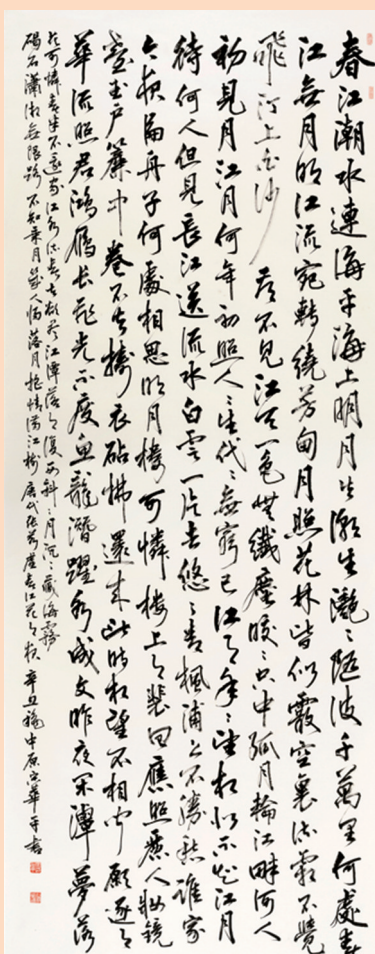 春江潮水連海平海上明月共潮生灧々隨波千萬里何處春
江無月明江流宛轉繞芳甸月照花林皆似霰空裏流霜不覺
飛汀上白沙看不見江天一色無纖塵皎々空中孤月輪江畔何人
初見月江月何年初照人々生代々無窮已江月年々望相似不知江月
待何人但見長江送流水白雲一片去悠々青楓浦上不勝愁誰家
今夜扁舟子何處相思明月樓可憐樓上月裴回應照離人妝鏡
臺玉戶簾中卷不去擣衣砧拂還來此時相望不相聞願逐月
華流照君鴻雁長飛光不度魚龍潛躍水成文昨夜閑潭夢落
花可憐春半不還家江水流春去欲盡江潭落月復西斜々月沉々藏海霧
碣石瀟湘無限路不知乘月幾人歸落月搖情滿江樹唐代張若虛春江花月夜辛丑中原華平書